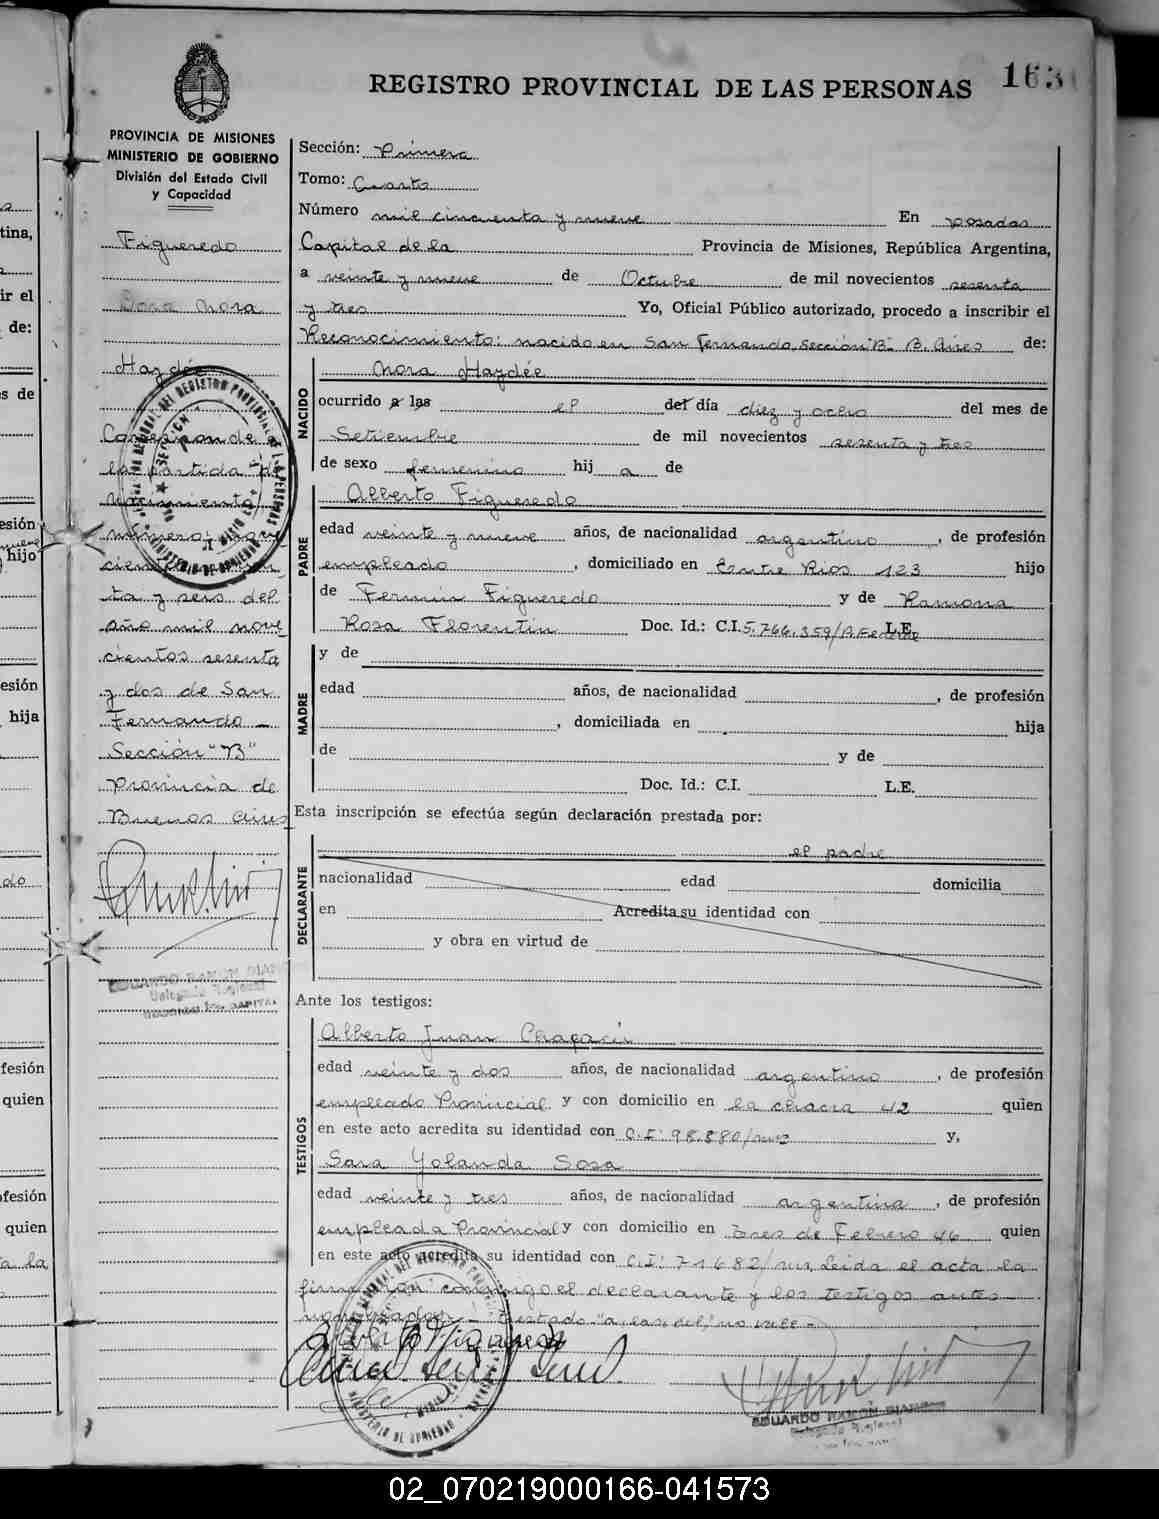 REGISTRO PROVINCIAL DE LAS PERSONAS
163
PROVINCIA DE MISIONES
MINISTERIO DE GOBIERNO
División del Estado Civil
y Capacidad
Figueredo
Nora
Haydée
la partida de
nacimiento
ta y seis del
año mil nove
cientos sesenta
y dos de San
Fernando -
Sección "B"
Provincia de
Buenos Aires
EDUARDO RAMON
Delegado Regional
Sección: Primera
Tomo: Cuarto
Número mil cincuenta y nueve En Posadas
Capital de la Provincia de Misiones, República Argentina,
a veinte y nueve de Octubre de mil novecientos sesenta
y tres Yo, Oficial Público autorizado, procedo a inscribir el
Reconocimiento: nacido en San Fernando, Sección "B" B. Aires de:
NACIDO
Nora Haydée
ocurrido a las el del día diez y ocho del mes de
Setiembre de mil novecientos sesenta y tres
de sexo femenino hij a de
PADRE
Alberto Figueredo
edad veinte y nueve años, de nacionalidad argentino, de profesión
empleado, domiciliado en Entre Rios 123 hijo
de Fermín Figueredo y de Ramona
Rosa Florentin Doc. Id.: C.I. 5.766.359/P.Federal L.E.
MADRE
y de
edad años, de nacionalidad , de profesión
, domiciliada en hija
de y de
Doc. Id.: C.I. L.E.
Esta inscripción se efectúa según declaración prestada por:
DECLARANTE
el padre
nacionalidad edad domicilia
en Acredita su identidad con
y obra en virtud de
Ante los testigos:
TESTIGOS
Alberto Juan
edad veinte y dos años, de nacionalidad argentino, de profesión
empleado Provincial y con domicilio en la chacra 42 quien
en este acto acredita su identidad con C.I: 98.880/mnes y,
Sara Yolanda Sosa
edad veinte y tres años, de nacionalidad argentina, de profesión
empleada Provincial y con domicilio en Tres de Febrero 46 quien
en este acto acredita su identidad con C.I: 71682/mns, Leida el acta la
firmaron conmigo el declarante y los testigos antes
nombrados - Testado "a las, del," no vale -
EDUARDO RAMON
Delegado Regional
02_070219000166-041573